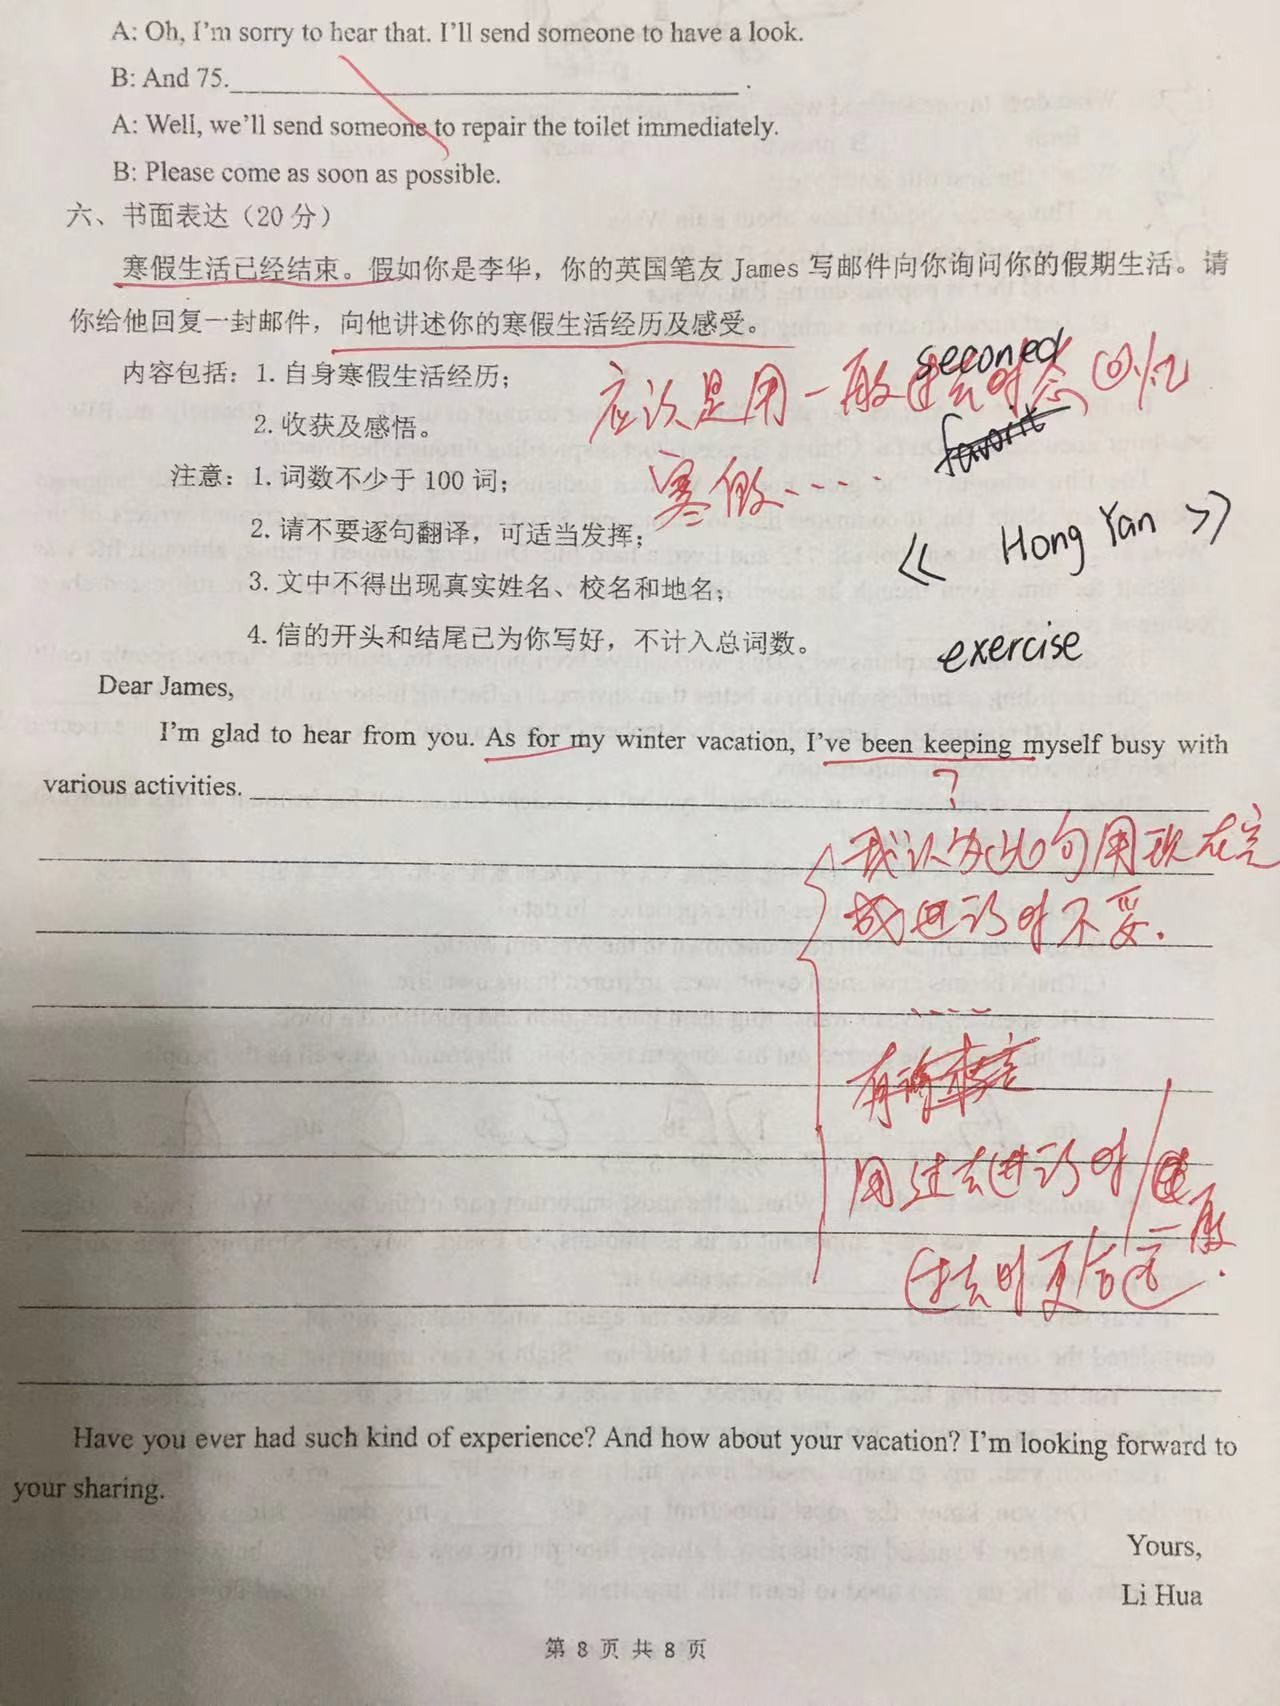 A: Oh, I'm sorry to hear that. I'll send someone to have a look.
B: And 75.________________.
A: Well, we'll send someone to repair the toilet immediately.
B: Please come as soon as possible.
六、书面表达（20 分）
寒假生活已经结束。假如你是李华，你的英国笔友 James 写邮件向你询问你的假期生活。请
你给他回复一封邮件，向他讲述你的寒假生活经历及感受。
内容包括：1. 自身寒假生活经历；
seconed
应该是用一般过去时态回忆
2. 收获及感悟。
favorit
寒假....
注意：1. 词数不少于 100 词；
2. 请不要逐句翻译，可适当发挥；
《 Hong Yan 》
3. 文中不得出现真实姓名、校名和地名；
4. 信的开头和结尾已为你写好，不计入总词数。
exercise
Dear James,
I'm glad to hear from you. As for my winter vacation, I've been keeping myself busy with
various activities.
?
我认为此句用现在完
成进行时不妥.
....
用过去进行时/一般
过去时更合适.
Have you ever had such kind of experience? And how about your vacation? I'm looking forward to
your sharing.
Yours,
Li Hua
第 8 页 共 8 页